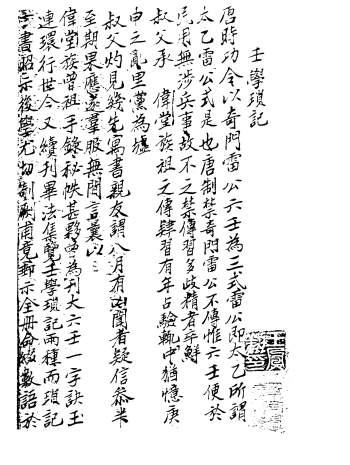 壬學瑣記
唐時功令以奇門雷公六壬為三式雷公即太乙所謂
太乙雷公式是也唐制禁奇門雷公不傳惟六壬便於
民用無涉兵事故不之禁傳習多歧精者卒鮮
叔父承 偉堂族祖之傳肄習有年占驗輒中猶憶庚
申之亂里黨為墟
叔父灼見幾先寓書親友謂八月有凶聞者疑信參半
至期果應遂羣服無間言曩以
偉堂族曾祖手錄秘帙甚夥曾為刊大六壬一字訣玉
連環行世今又續刊畢法集覽壬學瑣記兩種而瑣記
一書昭示後學尤切剞劂甫竟郵示全冊命綴數語於